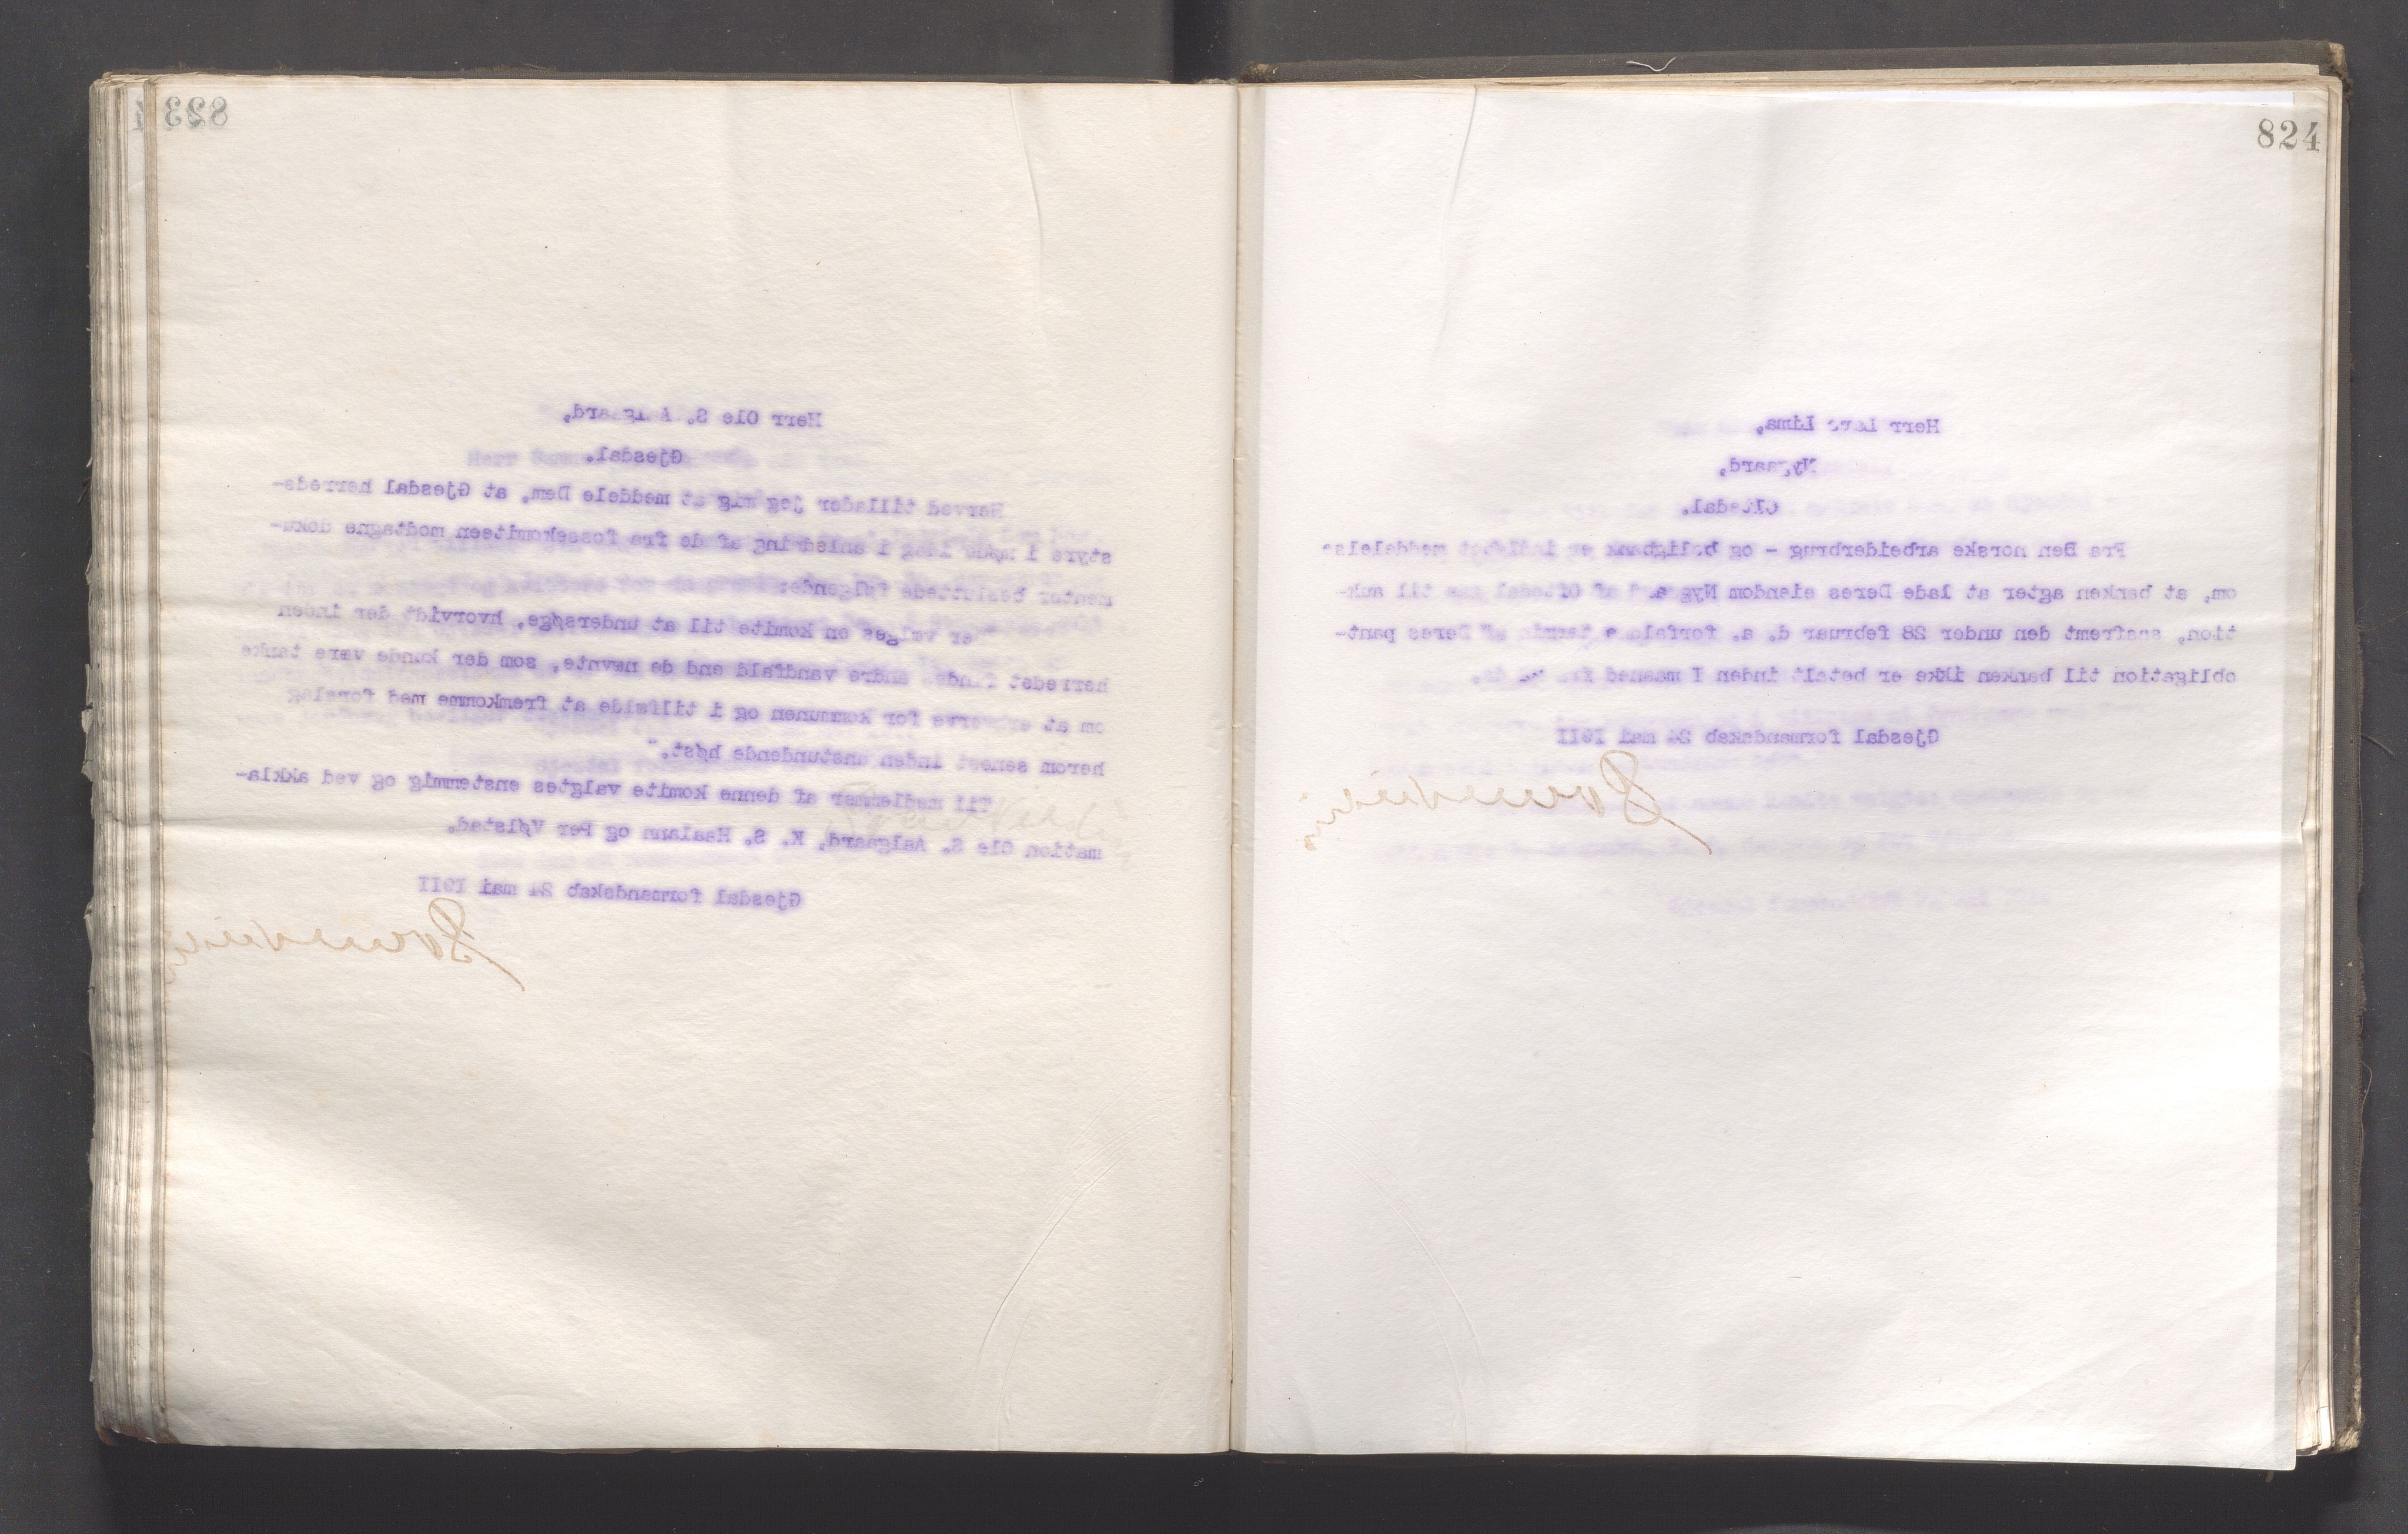 823
Herr Ole S. Aalgaard,
Gjesdal.
Herved tillader jeg mig at meddele Dem, at Gjesdal herreds-
styre i møde idag i anledning af de fra fossekomiteen modtagne doku-
menter besluttede følgende:
er vælges en komite til at undersøge, hvorvidt der inden
herredet findes andre vandfald end de nævnte, som der kunde være tanke
om at erhverve for kommunen og i tilfælde at fremkomme med forslag
herom senest inden anstundende høst."
Til medlemmer af denne komite valgtes enstemmig og ved akkla-
mation Ole S. Aalgaard, K. S. Haaland og Per Vølstad.
Gjesdal formandskab 24 mai 1911
824
Herr Lars Lima,
Nygaard,
Oltedal.
Fra Den norske arbeiderbrug - og boligbank er indløbet meddelelse
om, at banken agter at lade Deres eiendom Nygaard af Oltedal gaa til auk-
tion, saafremt den under 28 februar d. a. forfaldne termin af Deres pant-
obligation til banken ikke er betalt inden 1 maaned fra
Gjesdal formandskab 24 mai 1911